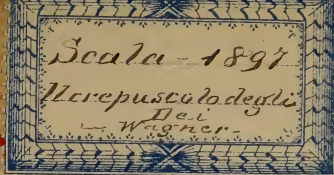 Scala - 1897
Il crepuscolo degli
Dei
Wagner -